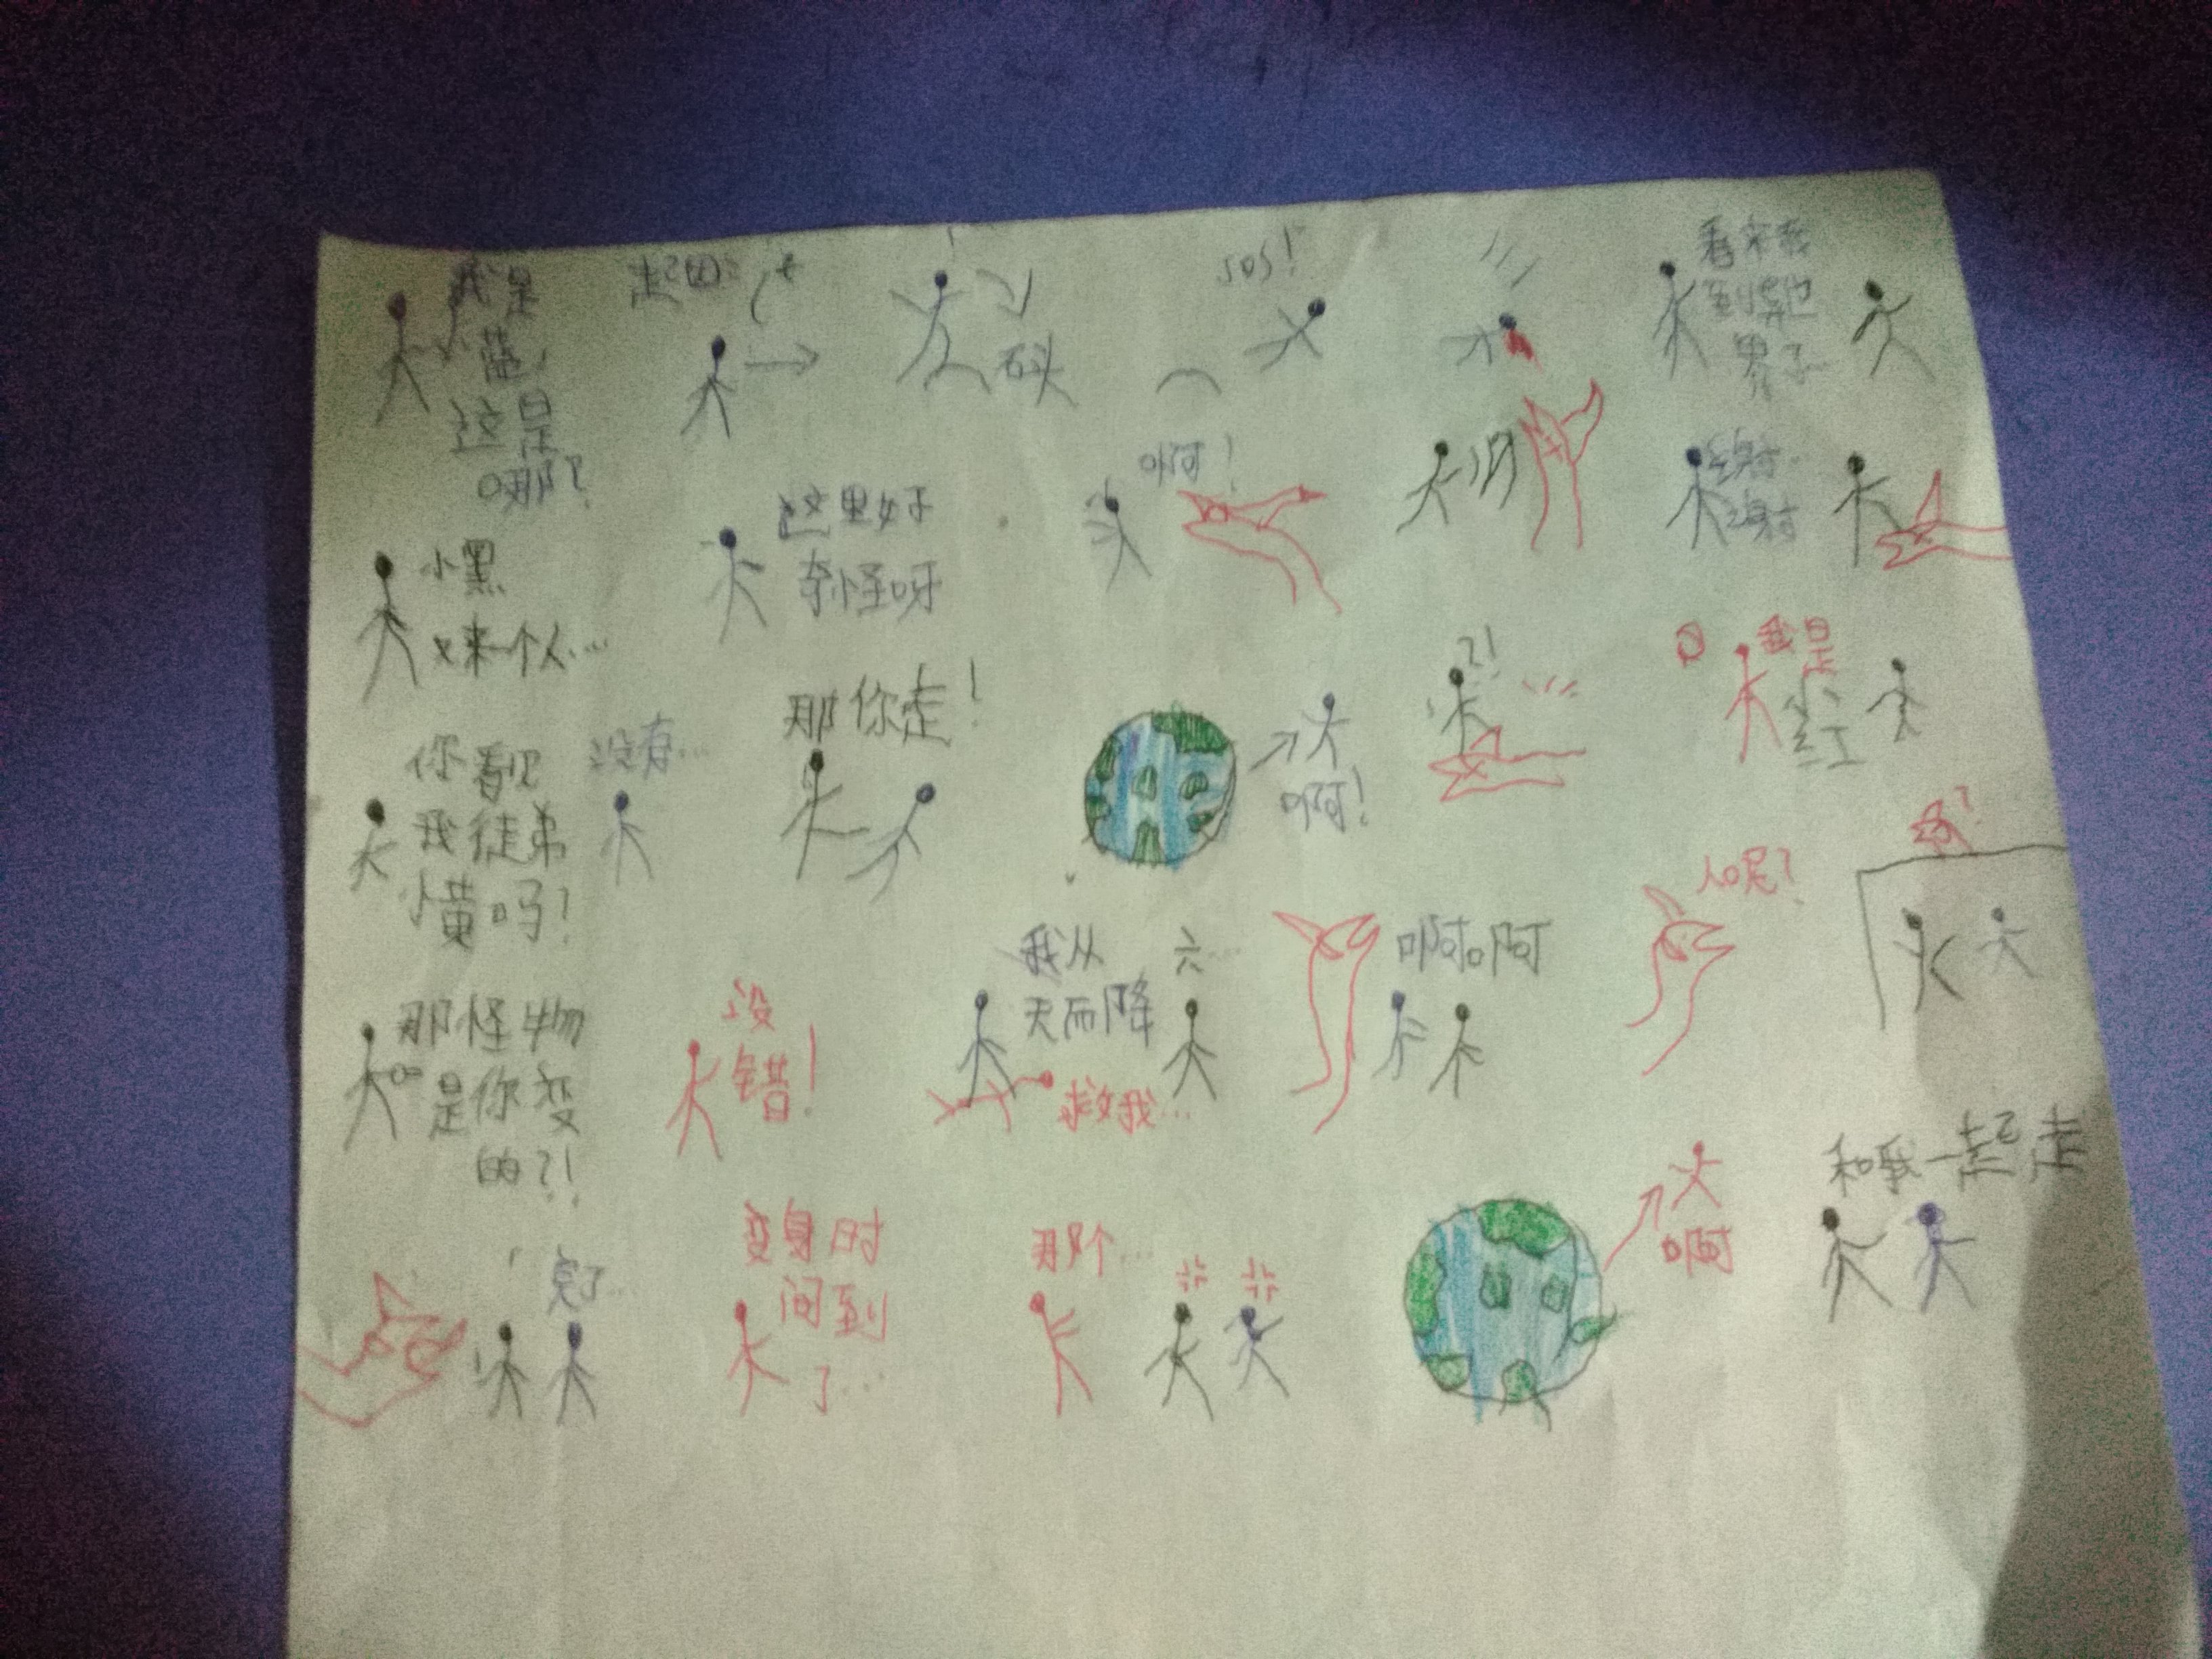 我是
蓝,
这是
哪?
起因:
石头
SOS!
看来我
到其他
界了
小黑
又来一个人…
这里好
奇怪呀
啊!
谢谢
你看见
我徒弟
小黄吗?
没有…
那你走!
啊!
?!
我是
红
那怪物
是你变
的?!
没
错!
我从
天而降
六…
救我…
啊啊
人呢?
?
完了…
变身时
间到
了…
那个…
啊
和我一起走